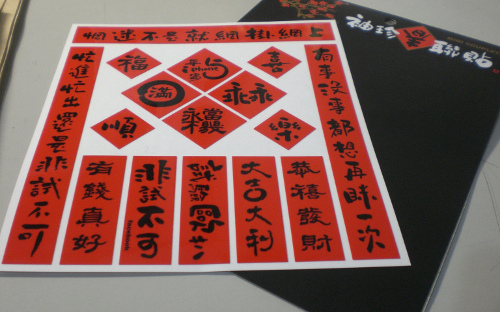 袖珍
聯貼
上網掛網就是不迷惘
有事沒事都想再一次
忙進忙出還是非試不可
福
喜
滿
乖乖
順
樂
有錢真好
非試不可
大吉大利
恭禧發財